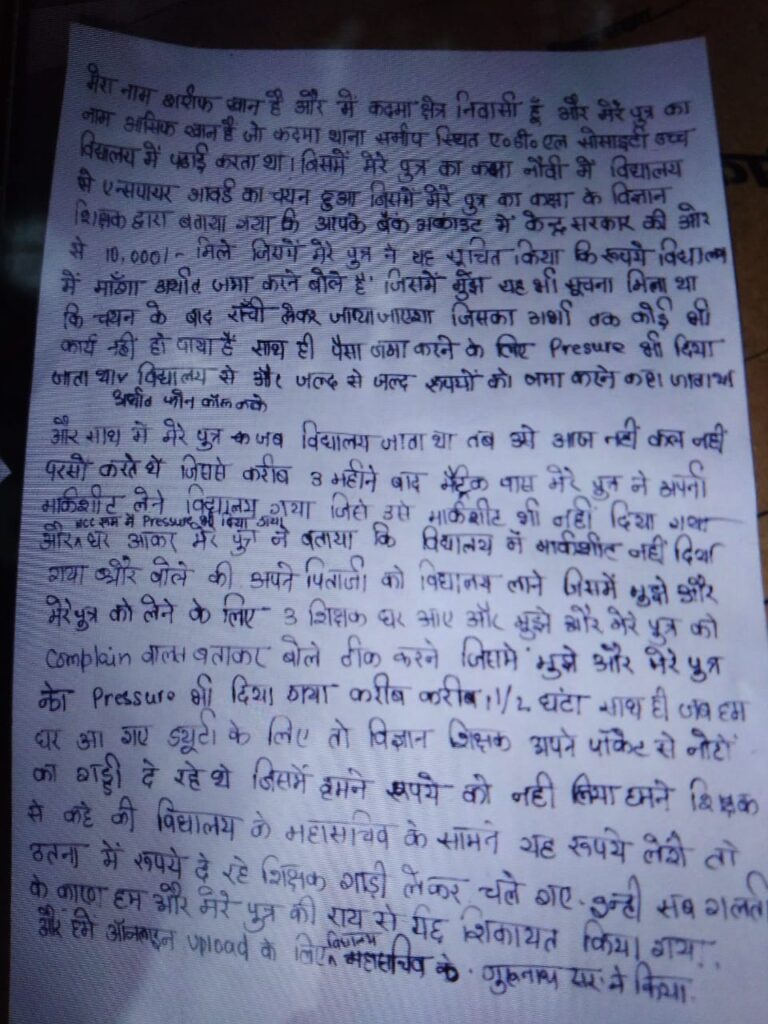 मेरा नाम शरीफ खान है और में कदमा क्षेत्र निवासी हूँ और मेरे पुत्र का
नाम आसिफ खान है जो कदमा थाना समीप स्थित ए०डी०एल सोसाइटी उच्च
विद्यालय में पढाई करता था। जिसमें मेरे पुत्र का कक्षा नौवी में विद्यालय
से एन्सपायर आवर्ड का चयन हुआ जिसमें मेरे पुत्र का कक्षा के विज्ञान
शिक्षक द्वारा बताया गया कि आपके बैंक अकाउंट में केन्द्र सरकार की ओर
से 10,000/- मिले जिसमें मेरे पुत्र ने यह सूचित किया कि रूपये विद्यालय
में माँगा अर्थात जमा करने बोले है जिसमें मुझे यह भी सूचना मिला था
कि चयन के बाद राँची लेकर जाया जाएगा जिसका अभी तक कोई भी
कार्य नहीं हो पाया है साथ ही पैसा जमा करने के लिए Presure भी दिया
जाता था विद्यालय से और जल्द से जल्द रूपयों को जमा करने कहा जाता था
अर्थात फोन कॉल करके
और साथ में मेरे पुत्र जब विद्यालय जाता था तब उसे आज नहीं कल नहीं
परसो करते थे जिससे करीब 3 महीने बाद मैट्रिक पास मेरे पुत्र ने अपनी
मार्कशीट लेने विद्यालय गया जिसे उसे मार्कशीट भी नहीं दिया गया
NCC रूम में Pressure भी दिया गया
और घर आकर मेरे पुत्र ने बताया कि विद्यालय में मार्कशीट नहीं दिया
गया और बोले की अपने पिताजी को विद्यालय लाने जिसमें मुझे और
मेरे पुत्र को लेने के लिए 3 शिक्षक घर आए और मुझे और मेरे पुत्र को
Complain बताकर बोले ठीक करने जिसमें मुझे और मेरे पुत्र
को Pressure भी दिया गया करीब करीब 1 1/2 घंटा साथ ही जब हम
घर आ गए ड्यूटी के लिए तो विज्ञान शिक्षक अपने पॉकेट से नोटों
का गड्डी दे रहे थे जिसमें हमने रूपये को नहीं लिया हमने शिक्षक
से कहे की विद्यालय के महासचिव के सामने यह रूपये लेंगे तो
उतना में रूपये दे रहे शिक्षक गाड़ी लेकर चले गए. इन्ही सब गलती
के कारण हम और मेरे पुत्र की राय से यह शिकायत किया गया.
और हमे ऑनलाइन upload के लिए विद्यालय महासचिव के गुरुनाथ सर ने किया.